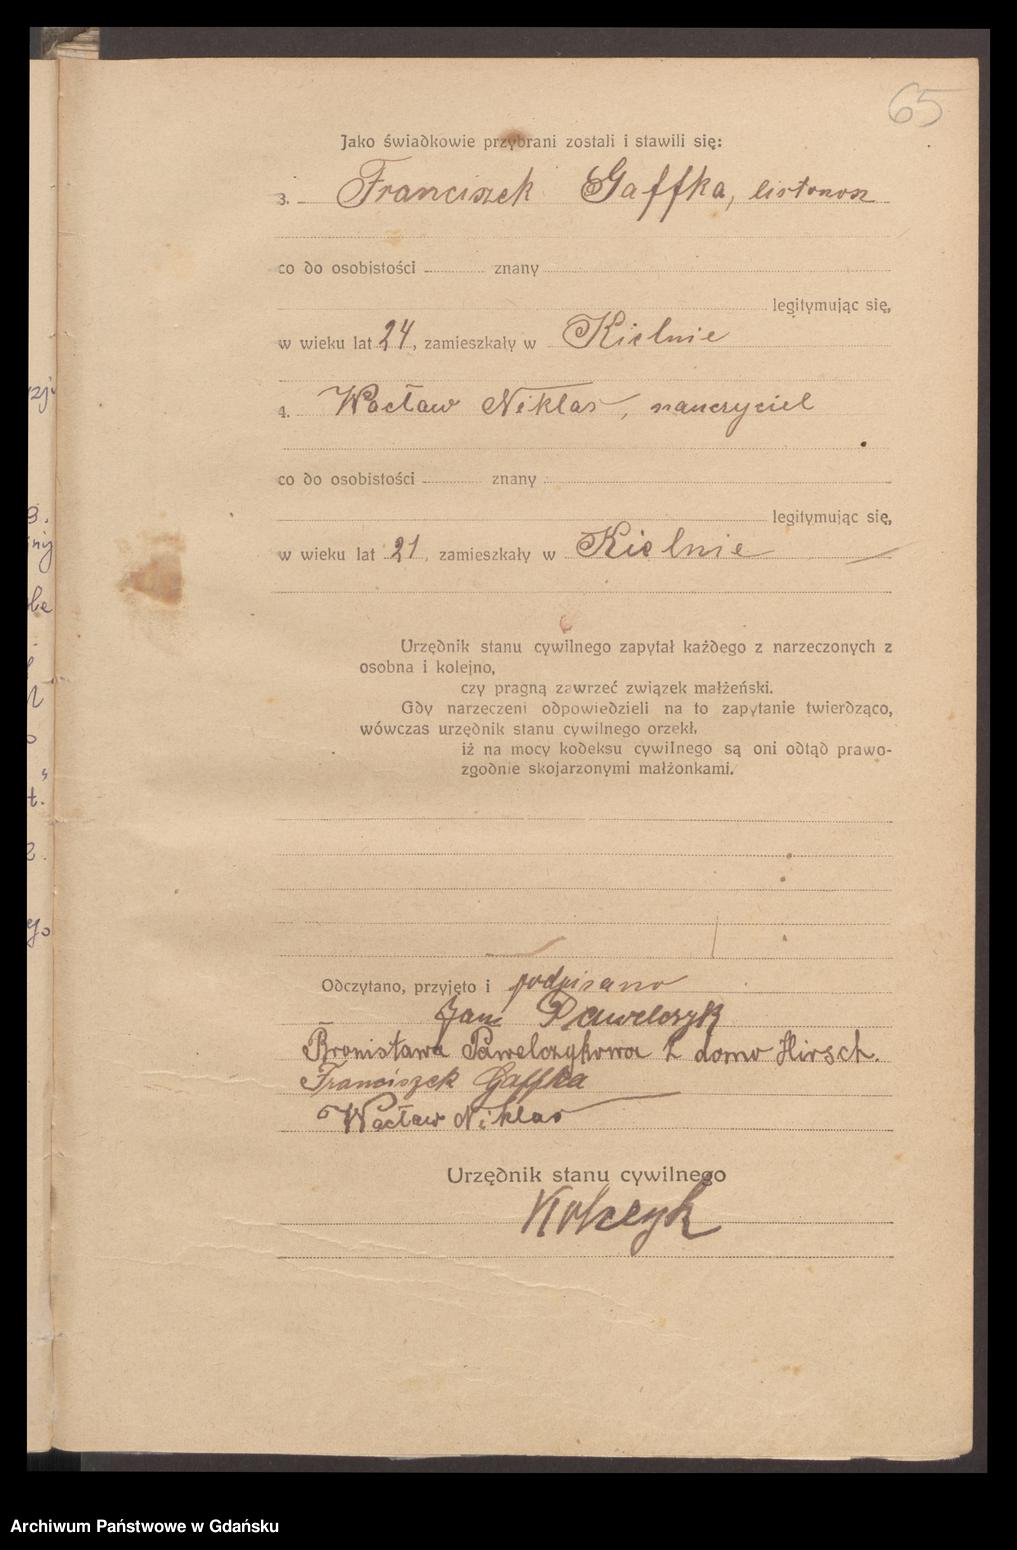 65
Jako świadkowie przybrani zostali i stawili się:
3. Franciszek Gaffka, listonosz
co do osobistości znany
legitymując się,
w wieku lat 24, zamieszkały w Kielnie
4. Wacław Niklas, nauczyciel
co do osobistości znany
legitymując się,
w wieku lat 21, zamieszkały w Kielnie
Urzędnik stanu cywilnego zapytał każdego z narzeczonych z
osobna i kolejno,
czy pragną zawrzeć związek małżeński.
Gdy narzeczeni odpowiedzieli na to zapytanie twierdząco,
wówczas urzędnik stanu cywilnego orzekł,
iż na mocy kodeksu cywilnego są oni odtąd prawo-
zgodnie skojarzonymi małżonkami.
Odczytano, przyjęto i podpisano
Jan Pawelczyk
Bronisława Pawelczykowa z domu Hirsch.
Franciszek Gaffka
Wacław Niklas
Urzędnik stanu cywilnego
Archiwum Państwowe w Gdańsku